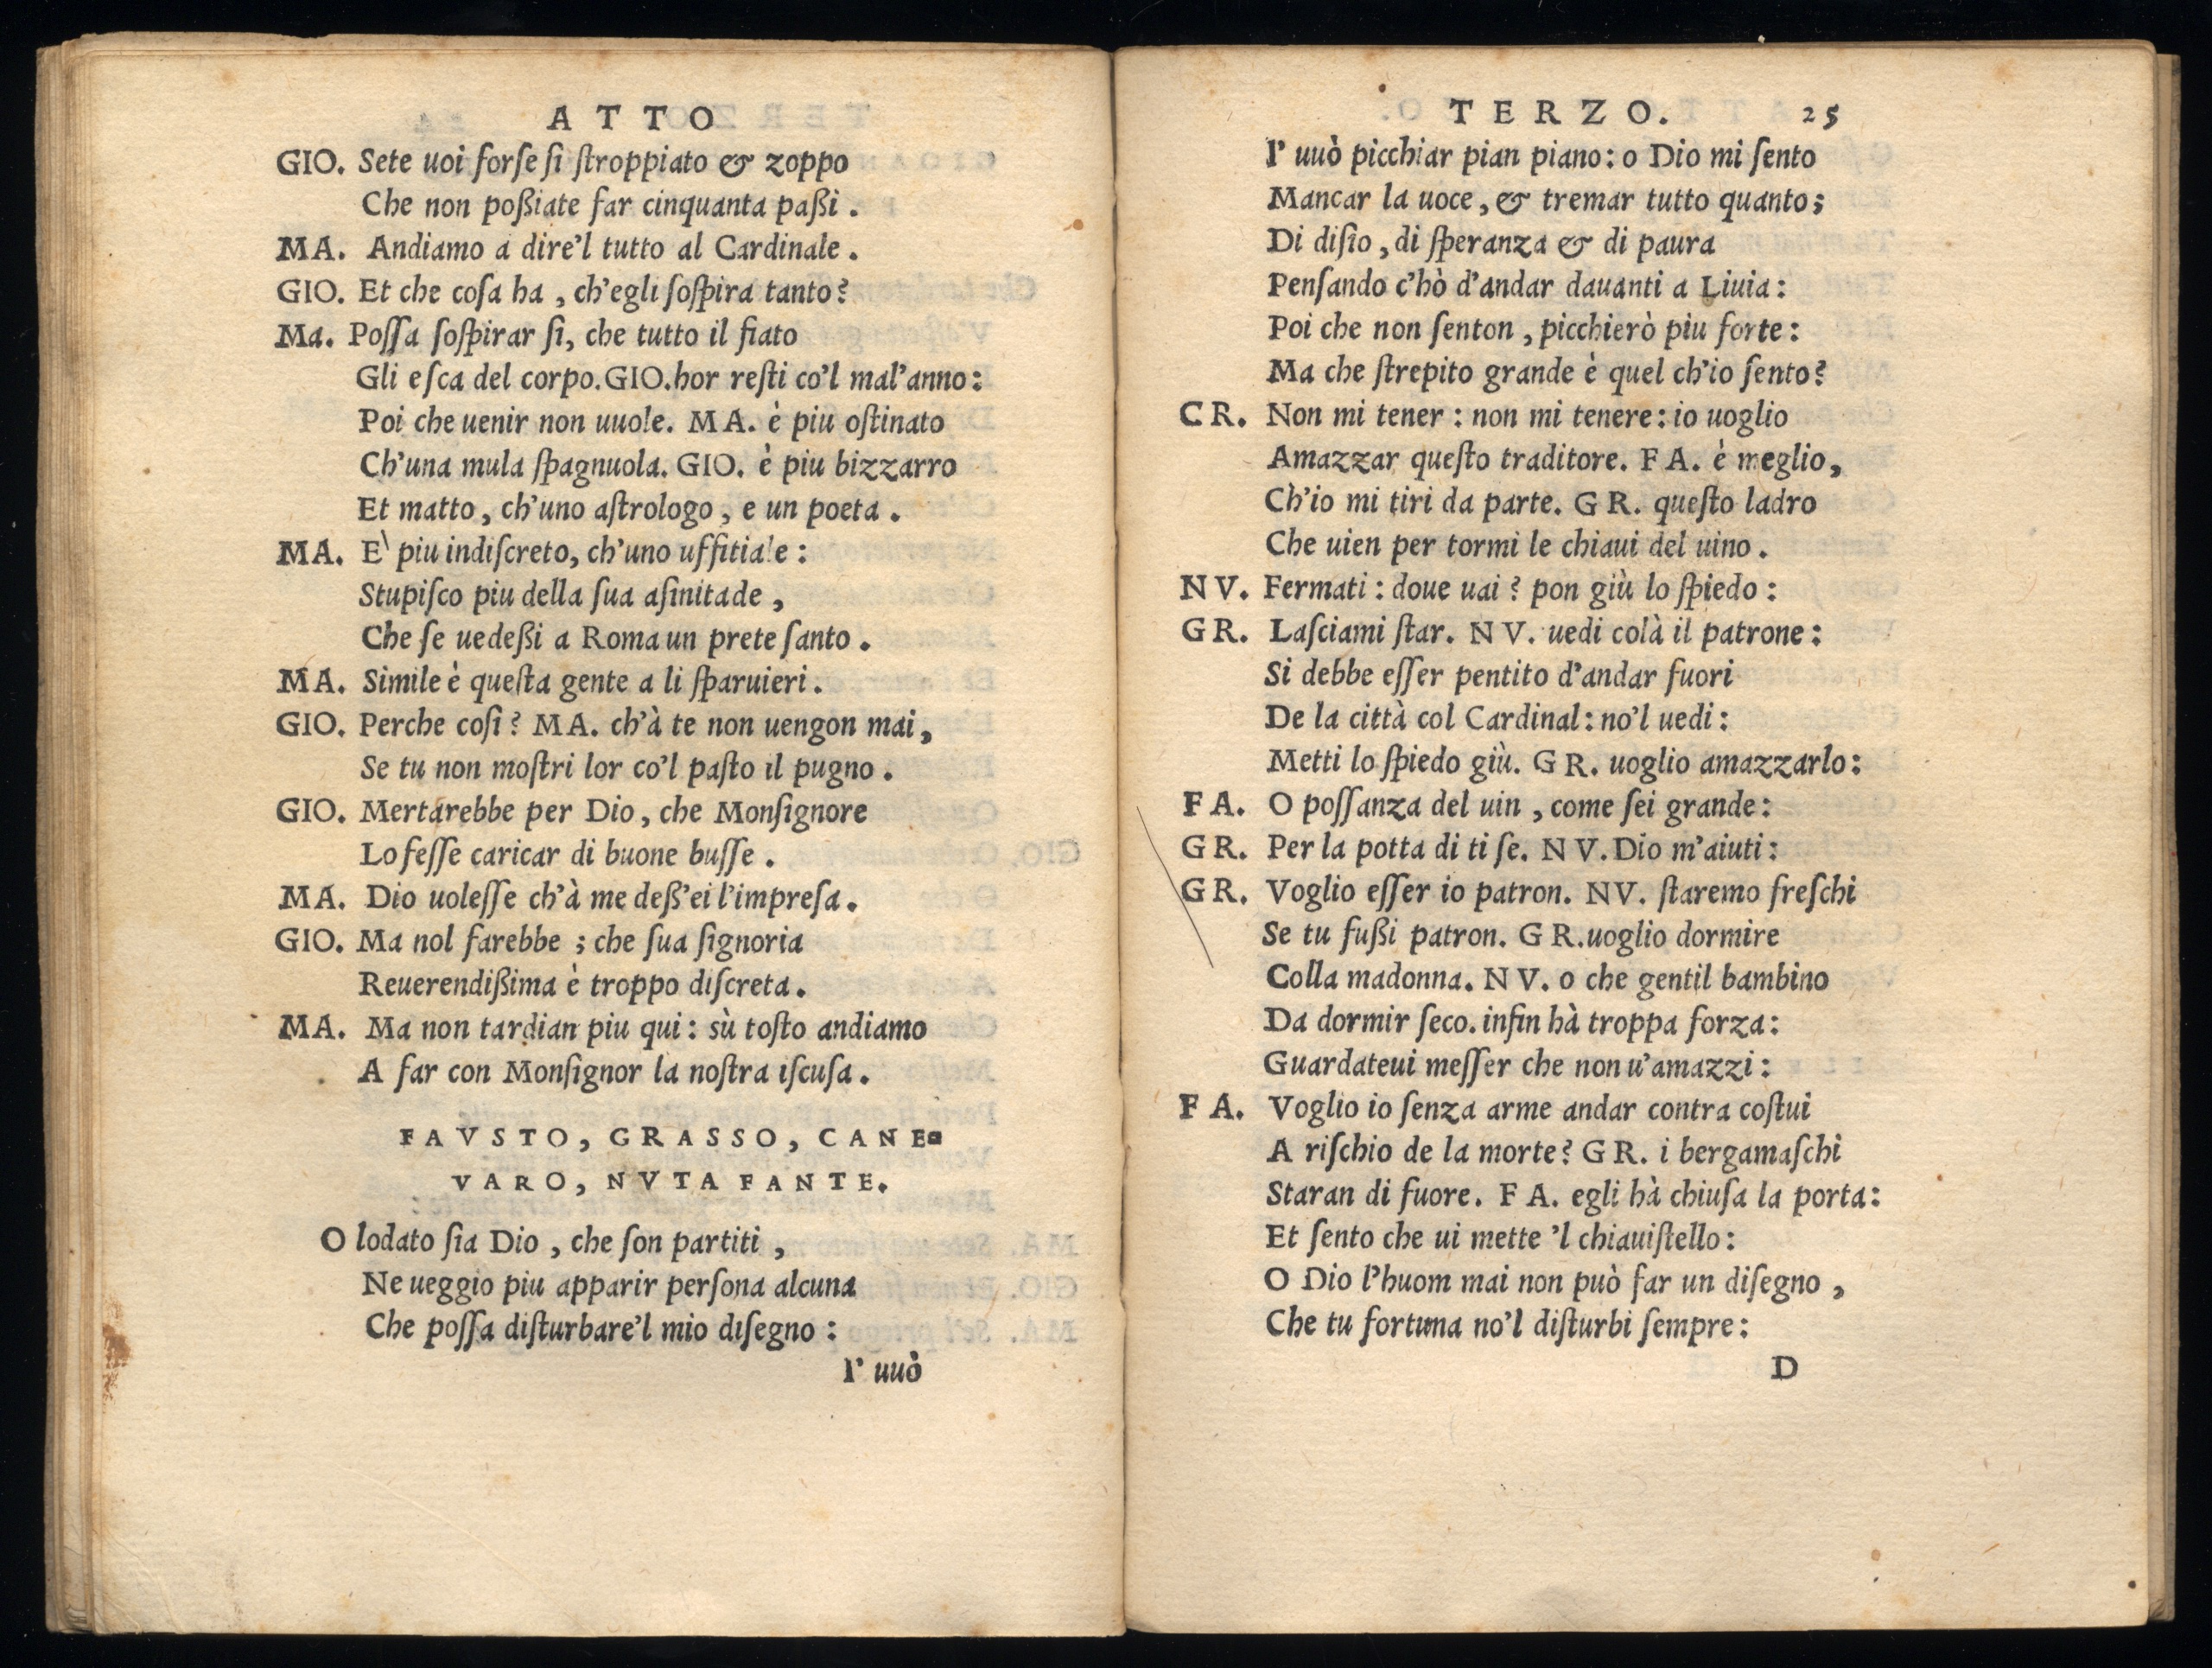 ATTO
GIO. Sete uoi forſe ſi ſtroppiato & zoppo
Che non poßiate far cinquanta paßi.
MA. Andiamo a dire'l tutto al Cardinale.
GIO. Et che coſa ha, ch'egli ſoſpira tanto?
Ma. Poſſa ſoſpirar ſi, che tutto il fiato
Gli eſca del corpo. GIO. hor reſti co'l mal'anno:
Poi che uenir non uuole. MA. è piu oſtinato
Ch'una mula ſpagnuola. GIO. è piu bizzarro
Et matto, ch'uno aſtrologo, e un poeta.
MA. E` piu indiſcreto, ch'uno uffitiale:
Stupiſco piu della ſua aſinitade,
Che ſe uedeßi a Roma un prete ſanto.
MA. Simile è queſta gente a li ſparuieri.
GIO. Perche coſi? MA. ch'à te non uengon mai,
Se tu non moſtri lor co'l paſto il pugno.
GIO. Mertarebbe per Dio, che Monſignore
Lo feſſe caricar di buone buſſe.
MA. Dio uoleſſe ch'à me deß'ei l'impreſa.
GIO. Ma nol farebbe; che ſua ſignoria
Reuerendißima è troppo diſcreta.
MA. Ma non tardian piu qui: sù toſto andiamo
A far con Monſignor la noſtra iſcuſa.
FAVSTO, GRASSO, CANE-
VARO, NVTA FANTE.
O lodato ſia Dio, che ſon partiti,
Ne ueggio piu apparir perſona alcuna
Che poſſa diſturbare'l mio diſegno:
I' uuò
TERZO. 25
I' uuò picchiar pian piano: o Dio mi ſento
Mancar la uoce, & tremar tutto quanto;
Di diſio, di ſperanza & di paura
Penſando c'hò d'andar dauanti a Liuia:
Poi che non ſenton, picchierò piu forte:
Ma che ſtrepito grande è quel ch'io ſento?
CR. Non mi tener: non mi tenere: io uoglio
Amazzar queſto traditore. FA. è meglio,
Ch'io mi tiri da parte. GR. queſto ladro
Che uien per tormi le chiaui del uino.
NV. Fermati: doue uai? pon giù lo ſpiedo:
GR. Laſciami ſtar. NV. uedi colà il patrone:
Si debbe eſſer pentito d'andar fuori
De la città col Cardinal: no'l uedi:
Metti lo ſpiedo giù. GR. uoglio amazzarlo:
FA. O poſſanza del uin, come ſei grande:
GR. Per la potta di ti ſe. NV. Dio m'aiuti:
GR. Voglio eſſer io patron. NV. ſtaremo freſchi
Se tu fußi patron. GR. uoglio dormire
Colla madonna. NV. o che gentil bambino
Da dormir ſeco. infin hà troppa forza:
Guardateui meſſer che non u'amazzi:
FA. Voglio io ſenza arme andar contra coſtui
A riſchio de la morte? GR. i bergamaſchi
Staran di fuore. FA. egli hà chiuſa la porta:
Et ſento che ui mette 'l chiauiſtello:
O Dio l'huom mai non può far un diſegno,
Che tu fortuna no'l diſturbi ſempre:
D